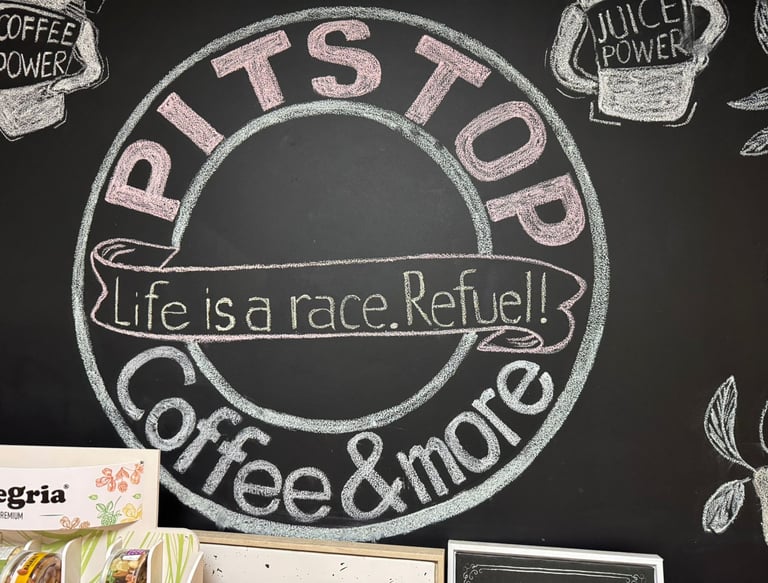 COFFEE
POWER
JUICE
POWER
PITSTOP
Life is a race. Refuel!
Coffee & more
egria®
REMIUM